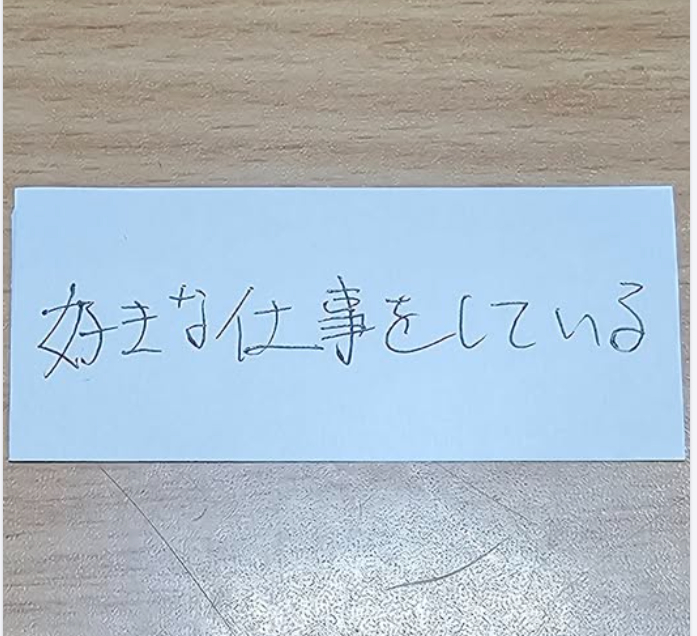 好きな仕事をしている